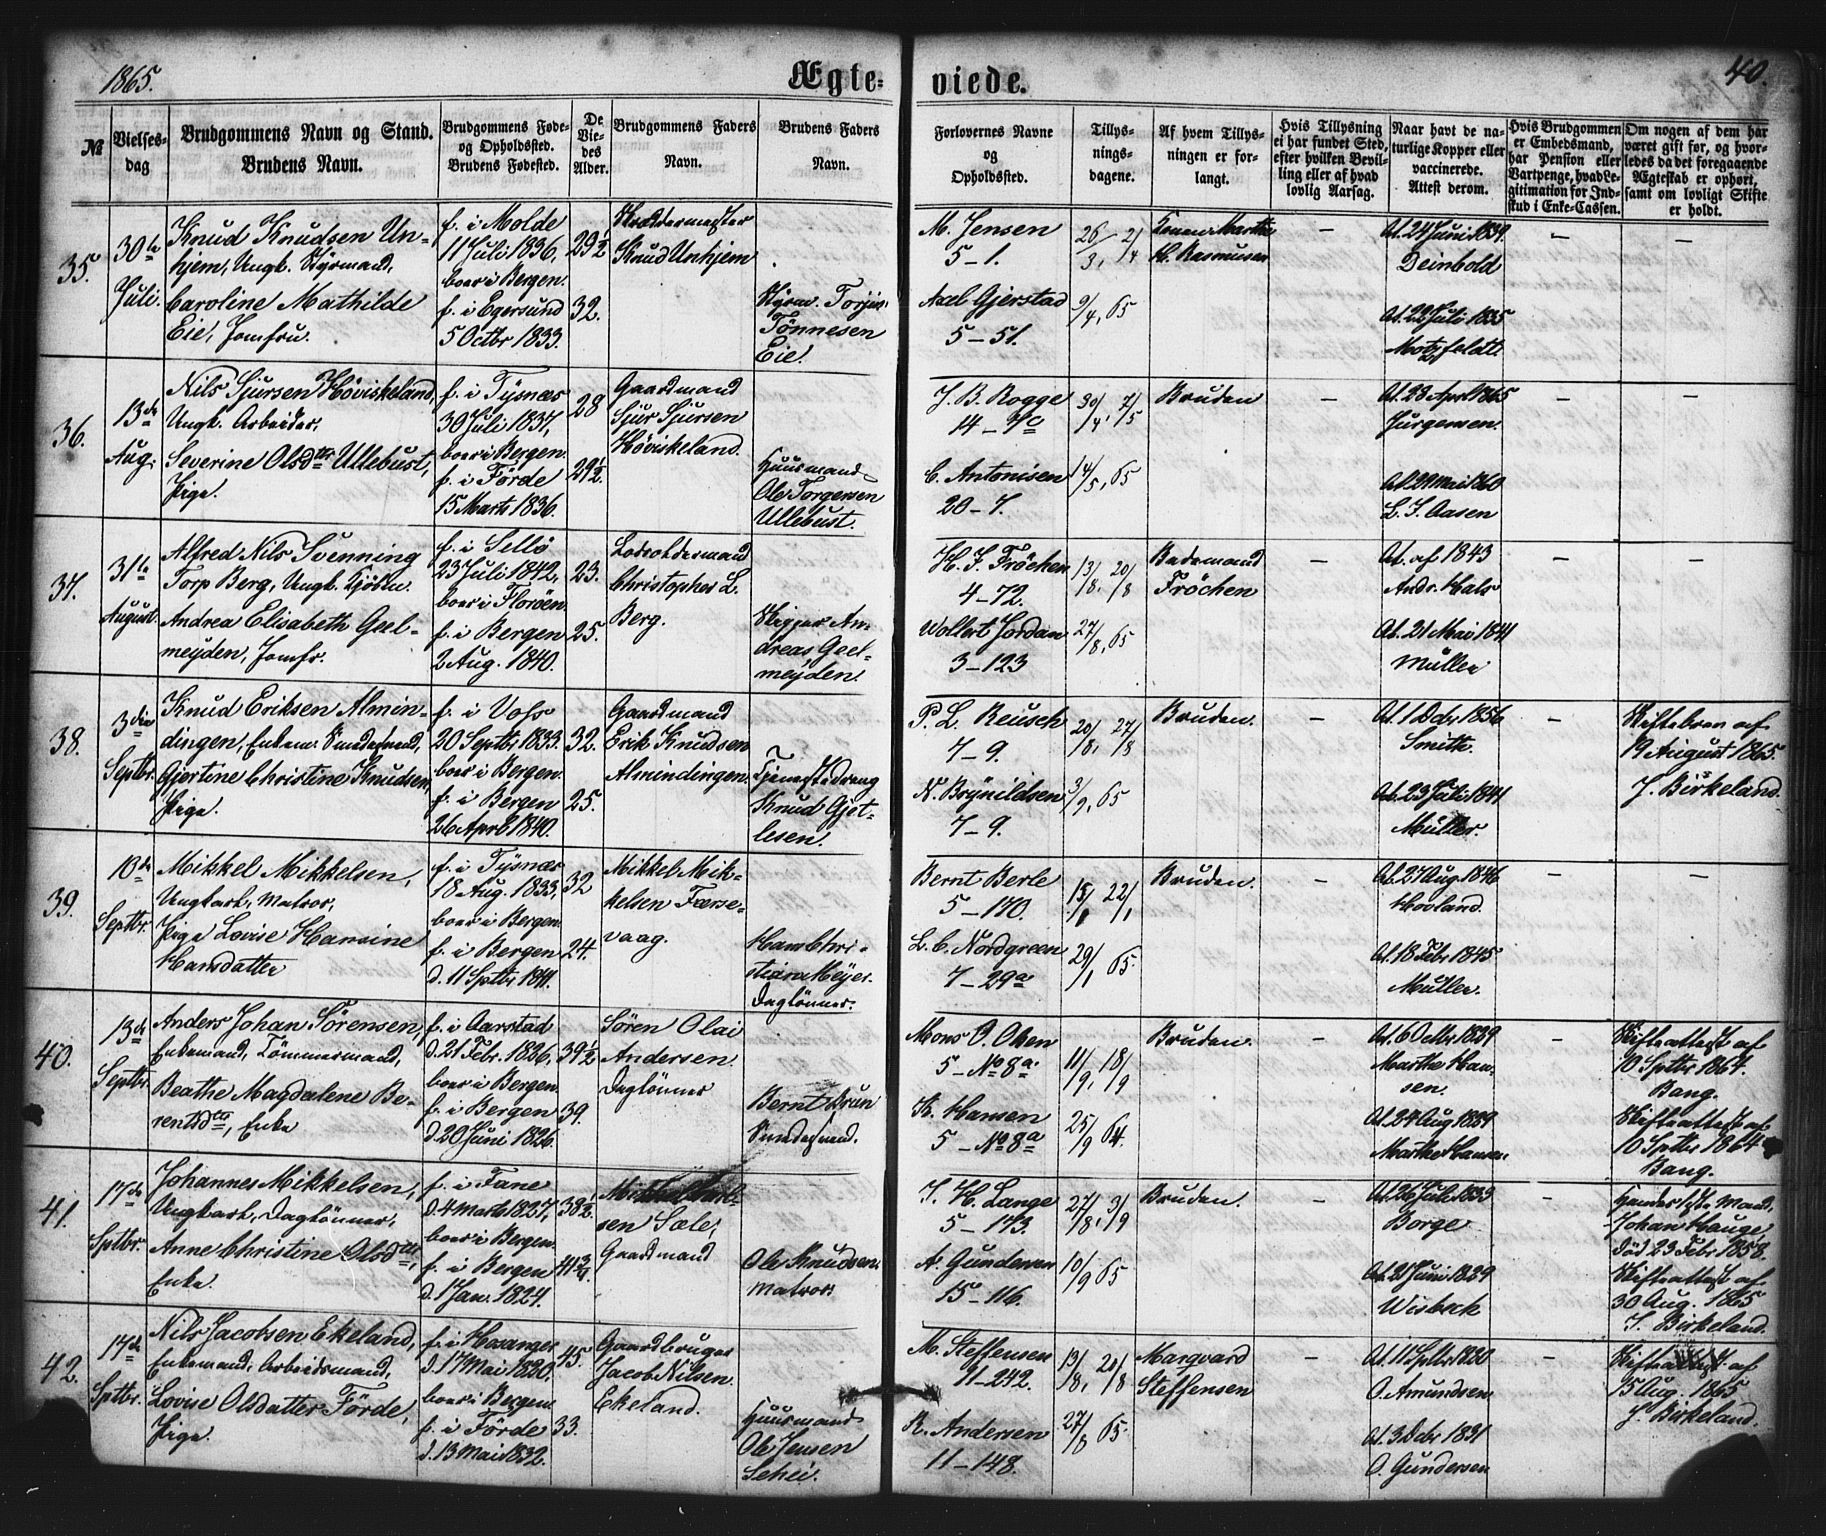 1865.
Ægte-
viede.
40.
№
Vielses-
dag
Brudgommens Navn og Stand.
Brudens Navn.
Brudgommens Føde-
og Opholdssted.
Brudens Fødested.
De
Vie-
des
Alder.
Brudgommens Faders
Navn.
Brudens Faders
Navn.
Forlovernes Navne
og
Opholdssted.
Tillys-
nings-
dagene.
Af hvem Tillys-
ningen er for-
langt.
Hvis Tillysning
ei har fundet Sted,
efter hvilken Bevil-
ling eller af hvad
lovlig Aarsag.
Naar havt de na-
turlige Kopper eller
vaccinerede.
Attest derom.
Hvis Brudgommen
er Embedsmand,
har Pension eller
Vartpenge, hvad Le-
gitimation for Ind-
skud i Enke-Cassen.
Om nogen af dem har
været gift før, og hvor-
ledes da det foregaaende
Ægteskab er ophørt,
samt om lovligt Skifte
er holdt.
35.
30te
Juli.
Knud Knudsen Un-
hjem, Ungk. Styrmand,
Caroline Mathilde
Eie, Jomfru.
f. i Molde
11 Juli 1836,
boer i Bergen.
f. i Egersund
5 Octbr 1833.
29½
32.
Knud Unhjem
Styrm. Torjus
Tönnesen
Eie.
M. Jensen
5-1.
Axel Gjerstad
5-51.
26/3, 2/4
9/4, 65
Marthe
M. Rasmusen
-
At. 24 Juni 1839.
Deinbold
At. 22 Juli 1835
Motzfeldt
-
-
36.
13de
Aug.
Nils Sjursen Høviskeland,
Ungk. Arbeider.
Severine Olsdtr Ullebust,
Pige.
f. i Tysnæs
30 Juli 1837,
boer i Bergen.
f. i Förde
15 Marts 1836.
28
29½.
Gaardmand
Sjur Sjursen
Høviskeland.
Huusmand
Ole Torgersen
Ullebust.
J. B. Rogge
14-7c
C. Antonisen
20-7.
30/4, 7/5
14/5, 65
Bruden
-
At. 28 April 1865
Jürgensen.
At. 29 Mai 1860
L. J. Aasen
-
-
37.
31te
August.
Alfred Nils Svenning
Torp Berg, Ungk. Kjöbm.
Andrea Elisabeth Geel-
meyden, Jomfr.
f. i Sellö
23 Juli 1842,
boer i Floröen.
f. i Bergen
2 Aug. 1840.
23.
25.
Lodsoldermand
Christopher L.
Berg.
Skipper An-
dreas Geel-
meyden.
H. J. Fröchen
4-72.
Wollert Jordan
3-123
13/8, 20/8
27/8, 65
Bademand
Fröchen
-
At. af 1843
Andr. Hals
At. 21 Mai 1841
Müller
-
-
38.
3die
Septbr.
Knud Eriksen Almin-
dingen, Enkem. Smedesvend,
Gjertine Christine Knudsen,
Pige.
f. i Voss
20 Septbr 1833.
boer i Bergen.
f. i Bergen
26 April 1840.
32.
25.
Gaardmand
Erik Knudsen
Almindingen.
Tjenestedreng
Knud Gjet-
lesen.
P. L. Reusch
7-9.
N. Brynildsen
7-9.
20/8, 27/8
3/9, 65
Bruden.
-
At. 1 Debr 1856
Smith.
At. 23 Juli 1841
Müller.
-
Skiftebrev af
19 August 1865.
J. Birkeland.
39.
10de
Septbr.
Mikkel Mikkelsen,
Ungkarl, Matros,
Pige Lovise Hansine
Hansdatter
f. i Tysnæs
18 Aug. 1833,
boer i Bergen.
f. i Bergen
d. 11 Sptbr 1841.
32
24.
Mikkel Mik-
kelsen Færse-
vaag.
Hans Chri-
stian Meyer.
Daglönner.
Bernt Berle
5-170.
L. C. Nordgreen
7-29a
15/1, 22/1
29/1 65.
Bruden.
-
At. 27 Aug. 1846
Hovland.
At. 18 Febr 1845
Müller.
-
40.
13de
Septbr.
Anders Johan Sörensen,
Enkemand, Tömmermand,
Beathe Magdalene Be-
rentsdtr, Enke
f. i Aarstad
d. 21 Febr. 1826,
boer i Bergen.
f. i Bergen
d. 20 Juni 1826.
39½
39.
Sören Olai
Andersen
Daglönner
Bernt Brun
Smedesvend.
Mons O. Olsen
5-No 8a
K. Hansen
5-No 8a
11/9, 18/9
25/9 64.
Bruden.
-
At. 6 Octbr 1829
Marthe Han-
sen.
At. 24 Aug 1829
Marthe Hansen
-
Skifteattest af
10 Sptbr 1864.
Bang.
Skifteattest af
10 Sptbr 1864
Bang.
41.
17de
Sptbr.
Johannes Mikkelsen,
Ungkarl, Daglönner,
Anne Christine Olsdtr,
Enke.
f. i Fane
d. 4 Marts 1827,
boer i Bergen.
f. i Bergen
d. 1 Jan. 1824.
38½
41¾.
sen Sæle,
Gaardmand
Ole Knudsen
Matros
J. H. Lange
5-173.
A. Gundersen
15-116.
27/8, 3/9
10/9 65
Bruden.
-
At. 26 Juli 1833
Borge
At. 21 Juni 1829
Wisbeck
-
Hendes sidste Mand,
Johan Hauge
död 23 Febr 1858,
Skifteattest af
30 Aug. 1865
J. Birkeland.
42.
17de
Sptbr.
Nils Jacobsen Ekeland,
Enkemand, Arbeidsmand,
Lovise Olsdatter Förde,
Pige.
f. i Hosanger
d. 17 Mai 1820,
boer i Bergen
f. i Förde
d. 13 Mai 1832.
45.
33.
Gaardbruger
Jacob Nilsen
Ekeland.
Huusmand
Ole Jensen
M. Steffensen
11-242.
R. Andersen
11-148.
13/8, 20/8
27/8 65.
Marqvard
Steffensen
-
At. 11 Sptbr 1830
O. Amundsen
At. 3 Debr 1831
O. Gundersen
-
Skifteattest af
15 Aug. 1865
J. Birkeland.